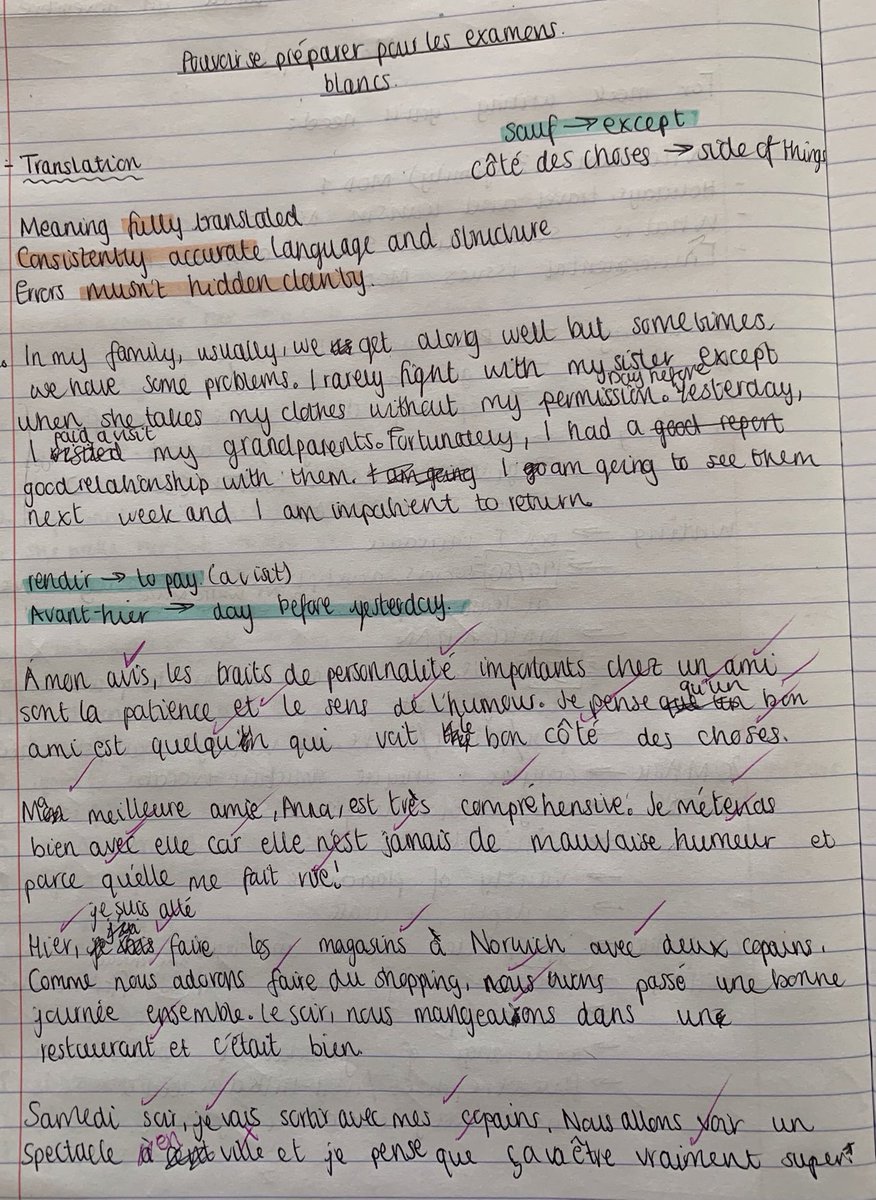 Pouvoir se préparer pour les examens
blancs.
sauf → except
- Translation
côté des choses → side of things
Meaning fully translated
Consistently accurate language and structure
Errors musn't hidden clarity.
In my family, usually, we get along well but sometimes,
we have some problems. I rarely fight with my sister except
day before
when she takes my clothes without my permission. Yesterday,
paid a visit
I visited my grandparents. Fortunately, I had a good report
good relationship with them. I am going I go am going to see them
next week and I am impatient to return.
rendir → to pay (a visit)
Avant-hier → day before yesterday.
À mon avis, les traits de personnalité importants chez un ami
sont la patience et le sens de l'humour. Je pense qu'un bon
ami est quelqu'un qui voit le bon côté des choses.
Ma meilleure amie, Anna, est très compréhensive. Je m'étends
bien avec elle car elle n'est jamais de mauvaise humeur et
parce qu'elle me fait rire!
je suis allé
Hier, faire les magasins à Norwich avec deux copains.
Comme nous adorons faire du shopping, nous avons passé une bonne
journée ensemble. Le soir, nous mangeaions dans un
restaurant et c'était bien.
Samedi soir, je vais sortir avec mes copains. Nous allons voir un
spectacle en ville et je pense que ça va être vraiment super.